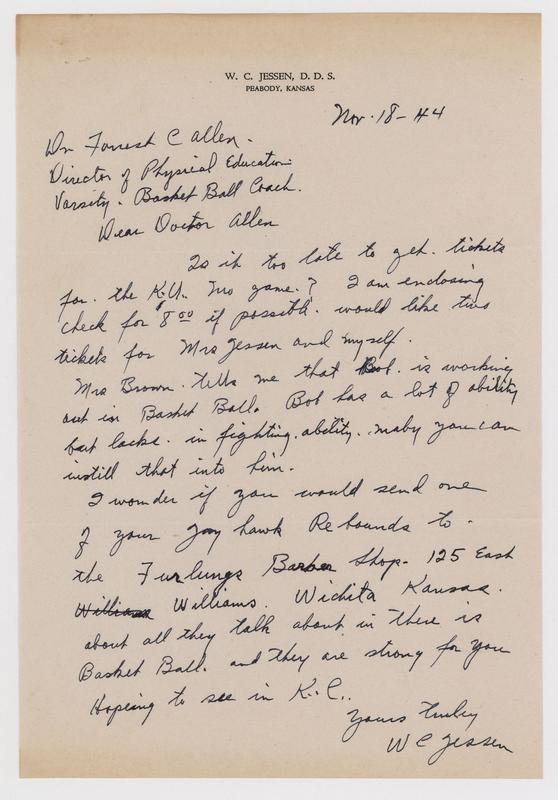 W. C. JESSEN, D. D. S.
PEABODY, KANSAS
Nov. 18 - 44
Dr Forrest C Allen.
Director of Physical Education
Varsity. Basket Ball Coach.
Dear Doctor Allen
Is it too late to get. tickets
for. the K.U. Mo game.? I am enclosing
check for $8.00 if possible. would like two
tickets for Mrs Jessen and myself.
Mrs Brown. tells me that Bob. is working
out in Basket Ball. Bob has a lot of ability
but lacks. in fighting. ability. maby you can
instill that into him.
I wonder if you would send one
of your Jay hawk Rebounds to.
the Furlungs Barber Shop. 125 East
Williams. Wichita Kansas.
about all they talk about in there is
Basket Ball. and they are strong for you
Hopeing to see in K.C..
Yours Truley
W C Jessen